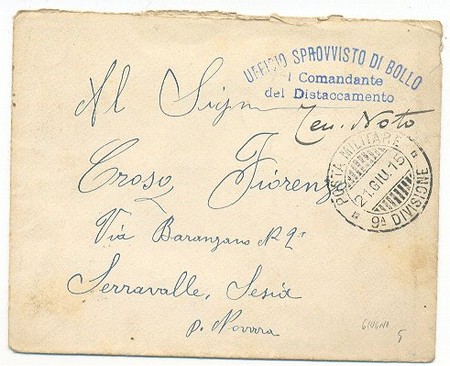 UFFICIO SPROVVISTO DI BOLLO
Il Comandante
del Distaccamento
Ten. Noto
POSTA MILITARE
21.GIU.15
9ª DIVISIONE
Al Sign
Croso Fiorenzo
Via Baranzano N 2
Serravalle, Sesia
p. Novara
GIUGNO
5